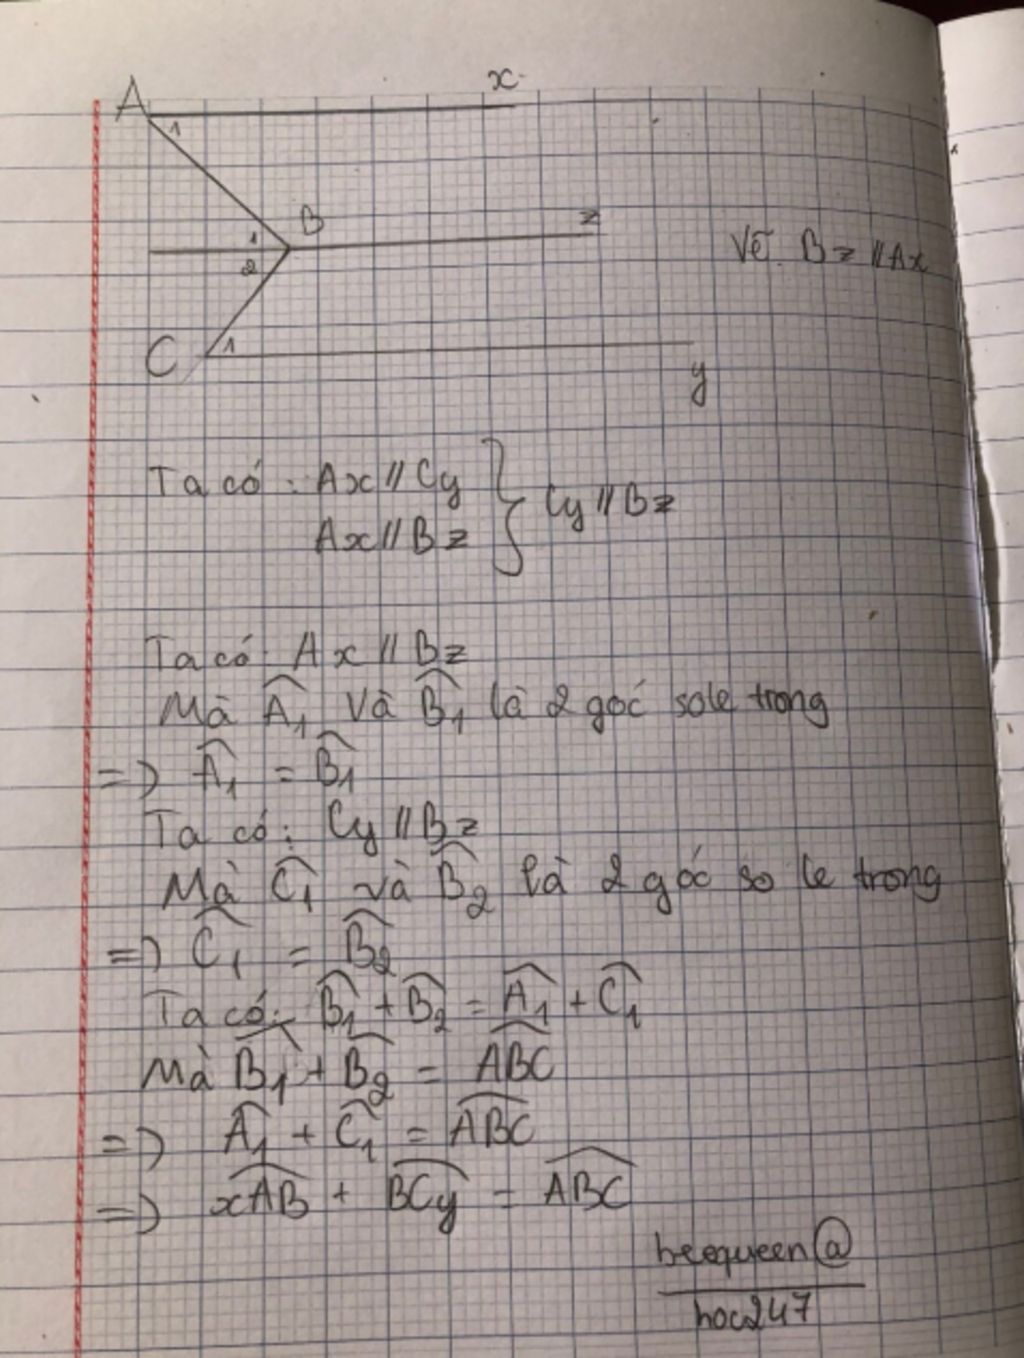 x
A
1
B
z
1
2
Vẽ. Bz // Ax
C
1
y
Ta có : Ax // Cy
Ax // Bz
} Cy // Bz
Ta có: Ax // Bz
Mà Â₁ và B̂₁ là 2 góc sole trong
=) Â₁ = B̂₁
Ta có: Cy // Bz
Mà Ĉ₁ và B̂₂ là 2 góc so le trong
=) Ĉ₁ = B̂₂
Ta có: B̂₁ + B̂₂ = Â₁ + Ĉ₁
Mà B̂₁ + B̂₂ = \widehat{ABC}
=) Â₁ + Ĉ₁ = \widehat{ABC}
=) \widehat{xAB} + \widehat{BCy} = \widehat{ABC}
beequeen@
hoc247